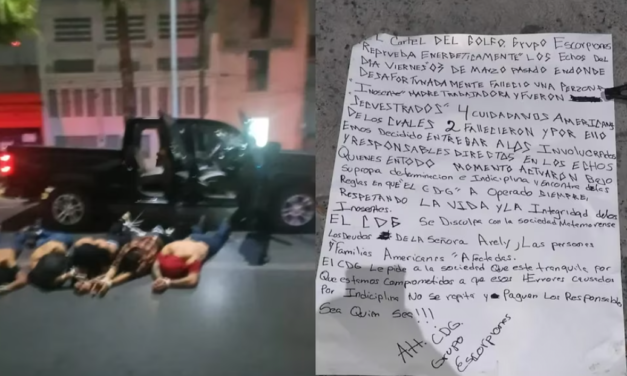 EL CARTEL DEL GOLFO, GRUPO Escorpiones
REPRUEBA ENERGETICAMENTE" LOS EChos DEL
DIA VIERNES" 03 DE MARZO PASADO ENDONDE
DESAFORTUNADAMENTE FAlleCio UNA PERSONA
" MADRE TRABAJADORA Y FUERON
"SECUESTRADOS" 4 CUIDADANOS AMERICANOS
DE LOS CUALES 2 FAllECIERON Y POR EllO
Emos DECIDIDO ENTREGAR ALOS INVOLUCRADOS
Y RESPONSABLES DIRECTOS EN LOS EChOS
QUIENES ENTODO MOMENTO ACTUARON BAJO
Su propia determinacion e Indiciplina y Encontra deles
Reglas EN quE" EL CDG" A OPERADO SIEMPRE,
RESPETANDO LA VIDA Y LA Integridad delos
Inosentes.
EL CDG Se Disculpa con la sociedad Matamorense
Los Deudos DE LA SEÑORA Arely y Las personas
Y Familias Americanas" Afectades.
El CDG Le pide a la sociedad Que este tranquila por
Que estamos Comprometidos a que esos "Errores causados
Por Indiciplina No se repita y Paguen Los Responsables
Sea Quim Sea!!!
Att. CDG
Grupo
Escorpiones